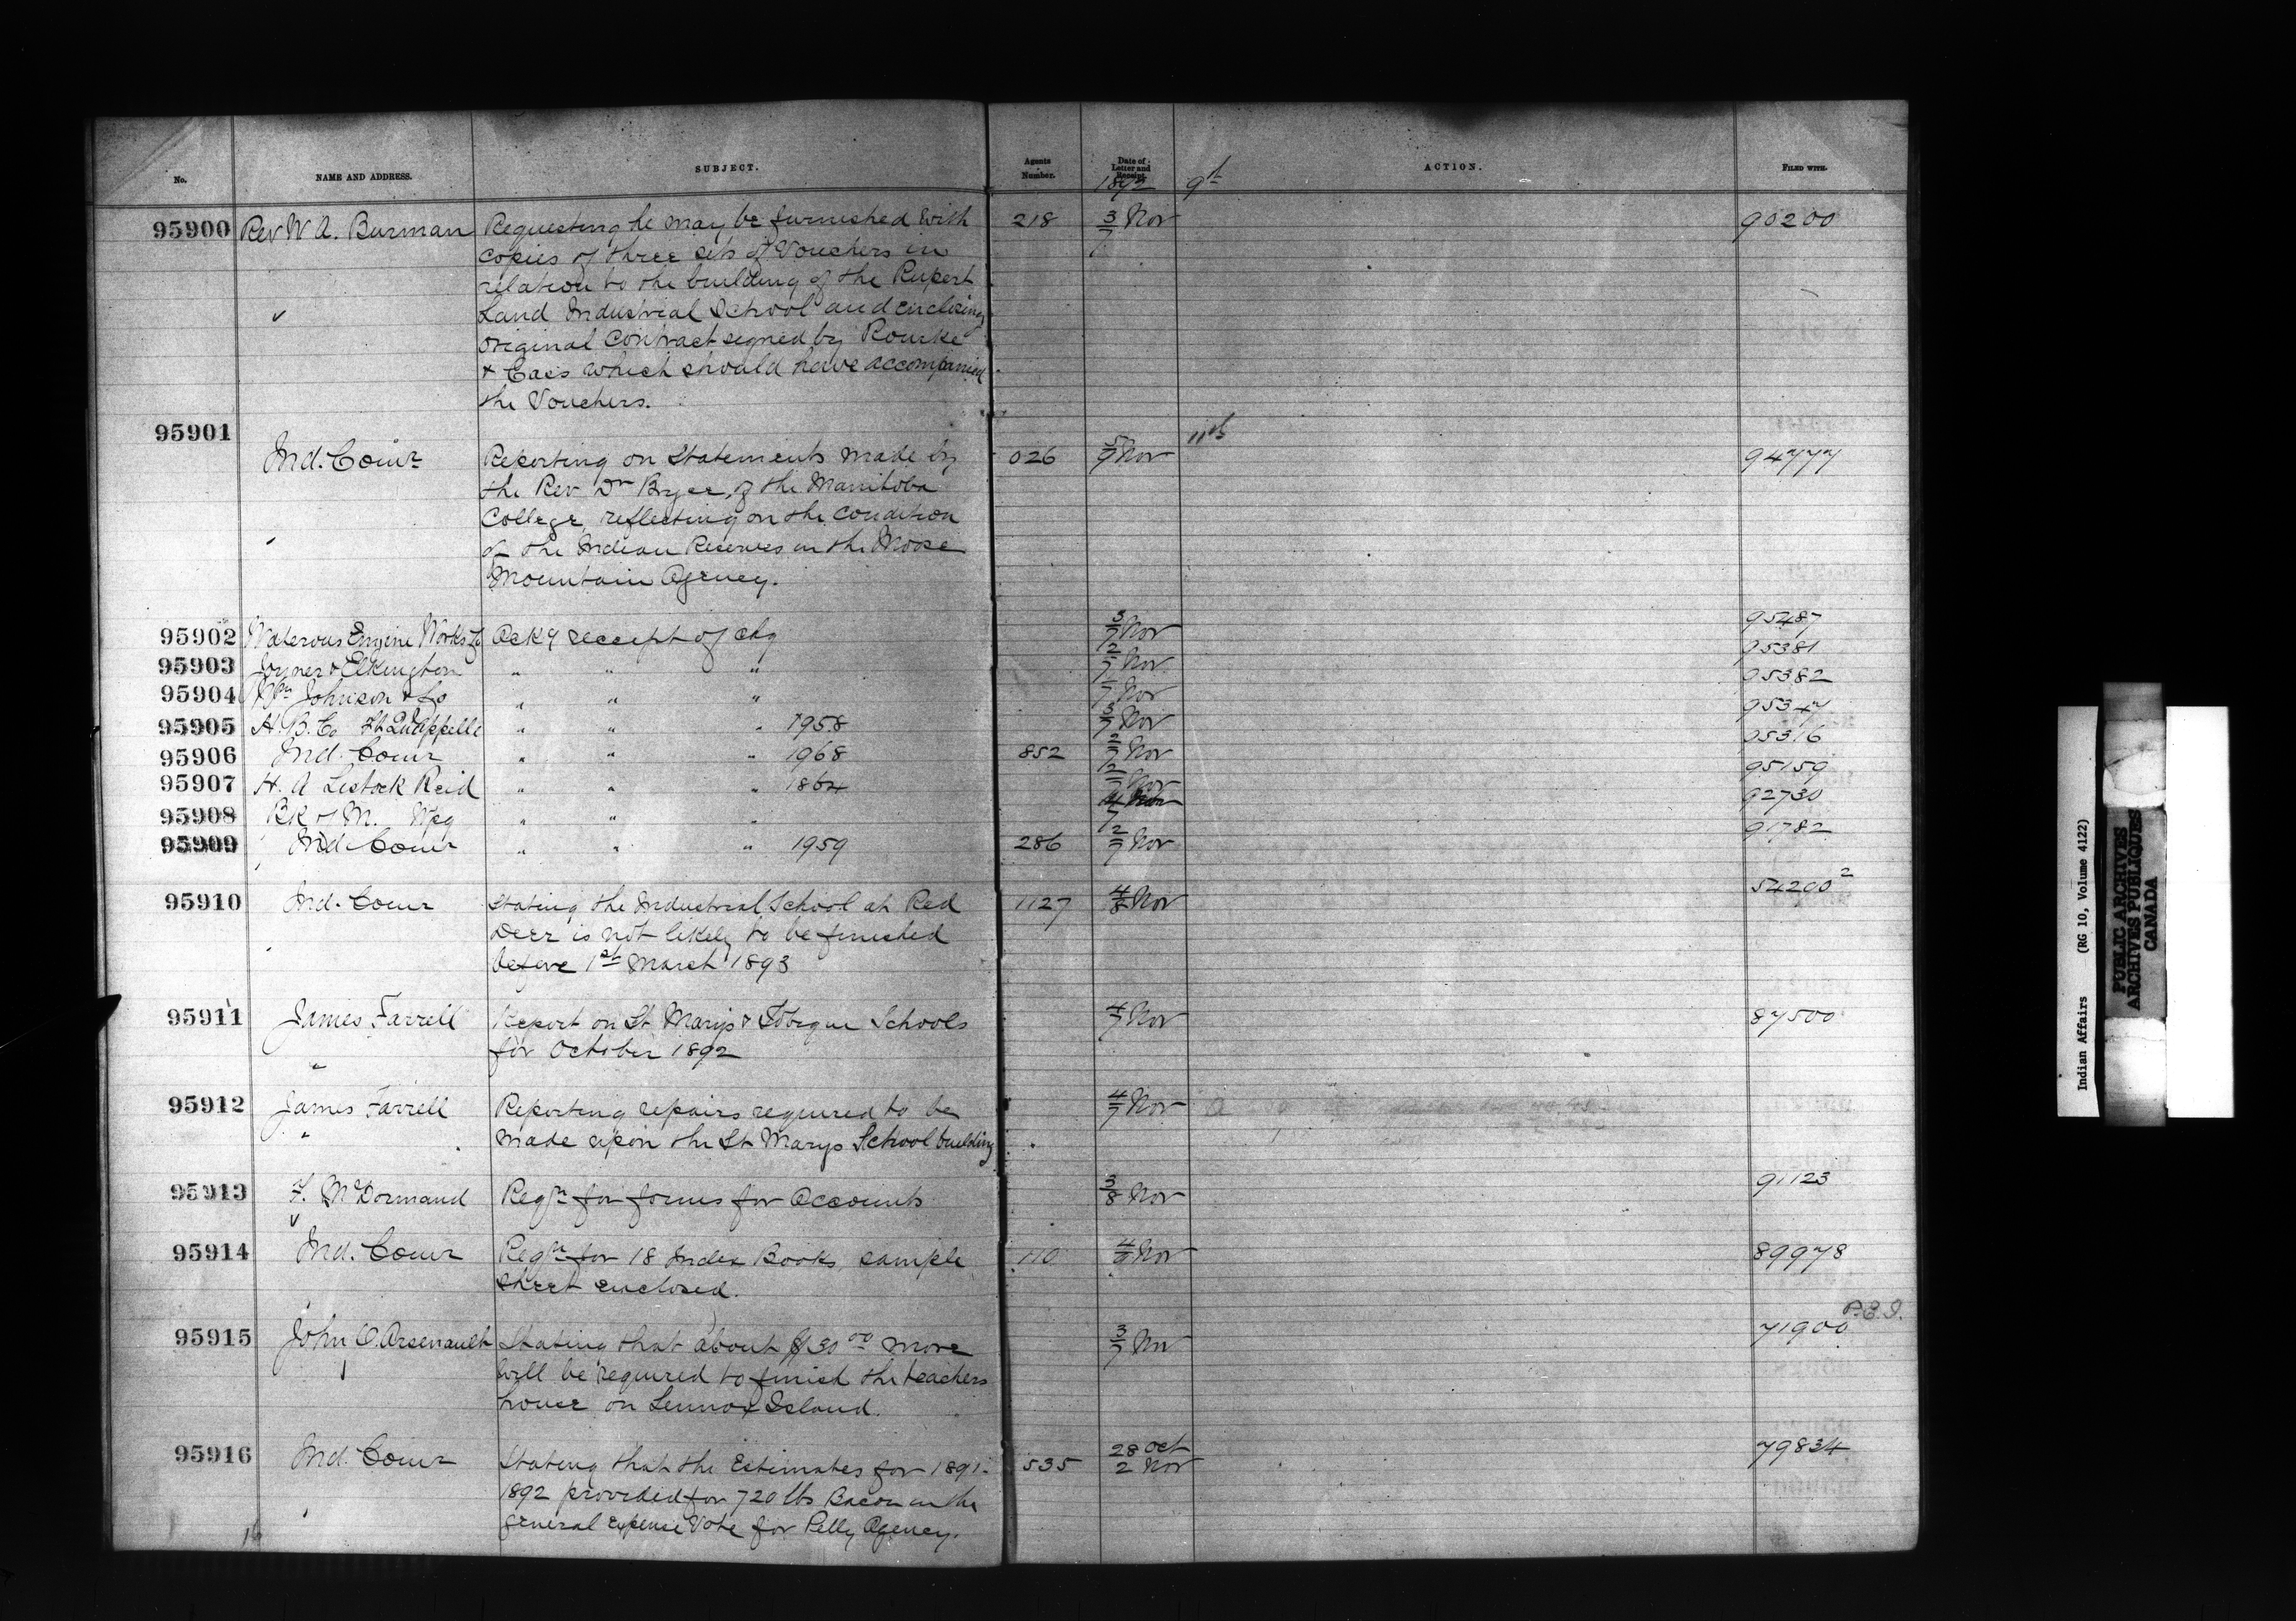 No. NAME AND ADDRESS. SUBJECT. Agents Number. Date of Letter and Receipt. ACTION. FILED WITH.
1892 9th
95900 Rev W A. Burman Requesting he may be furnished with 218 3/7 Nor 90200
copies of three sets of Vouchers in
relation to the building of the Rupert
Land Industrial School and enclosing
original Contract signed by Rourke
& Cass which should have accompanied
the Vouchers.
95901 11th
Ind. Comr Reporting on Statements made by 026 5/9 Nov 94777
the Rev Dr Bryce, of the Manitoba
College, reflecting on the condition
of the Indian Reserves in the Moose
Mountain Agency.
95902 Waterous Engine Works Co Ackg receipt of chq 3/7 Nov 95487
95903 Joyner & Elkington " " " 2/7 Nov 95381
95904 Wm Johnson & Co " " " Nov 95382
95905 H. B. Co Ft. Qu'Appelle " " " 1958 3/7 Nov 95347
95906 Ind. Comr " " " 1968 852 2/7 Nov 95316
95907 H. A Lestock Reid " " " 1864 2/7 Nov 95159
95908 BK of M. Wpg " " " 92730
95909 Ind. Comr " " " 1959 286 2/7 Nov 91782
95910 Ind. Comr Stating the Industrial School at Red 1127 4/8 Nov 54200 2
Deer is not likely to be finished
before 1st March 1893
95911 James Farrell Report on St Marys & Tobique Schools 4/7 Nov 87500
for October 1892
95912 James Farrell Reporting repairs required to be 4/7 Nov
made upon the St Marys School building
95913 F. McDormand Reqn for forms for Accounts 3/8 Nov 91123
95914 Ind. Comr Reqn for 18 Index Books, sample 110 4/9 Nov 89978
sheet enclosed.
P.E.I.
95915 John O. Arsenault Stating that about $30 00 more 3/7 Nov 71900
will be required to finish the teachers
house on Lennox Island.
95916 Ind. Comr Stating that the Estimates for 1891- 535 28 Oct 2 Nov 79834
1892 provided for 720 lbs Bacon in the
general expense Vote for Pelly Agency.
Indian Affairs (RG 10, Volume 4122)
PUBLIC ARCHIVES
ARCHIVES PUBLIQUES
CANADA